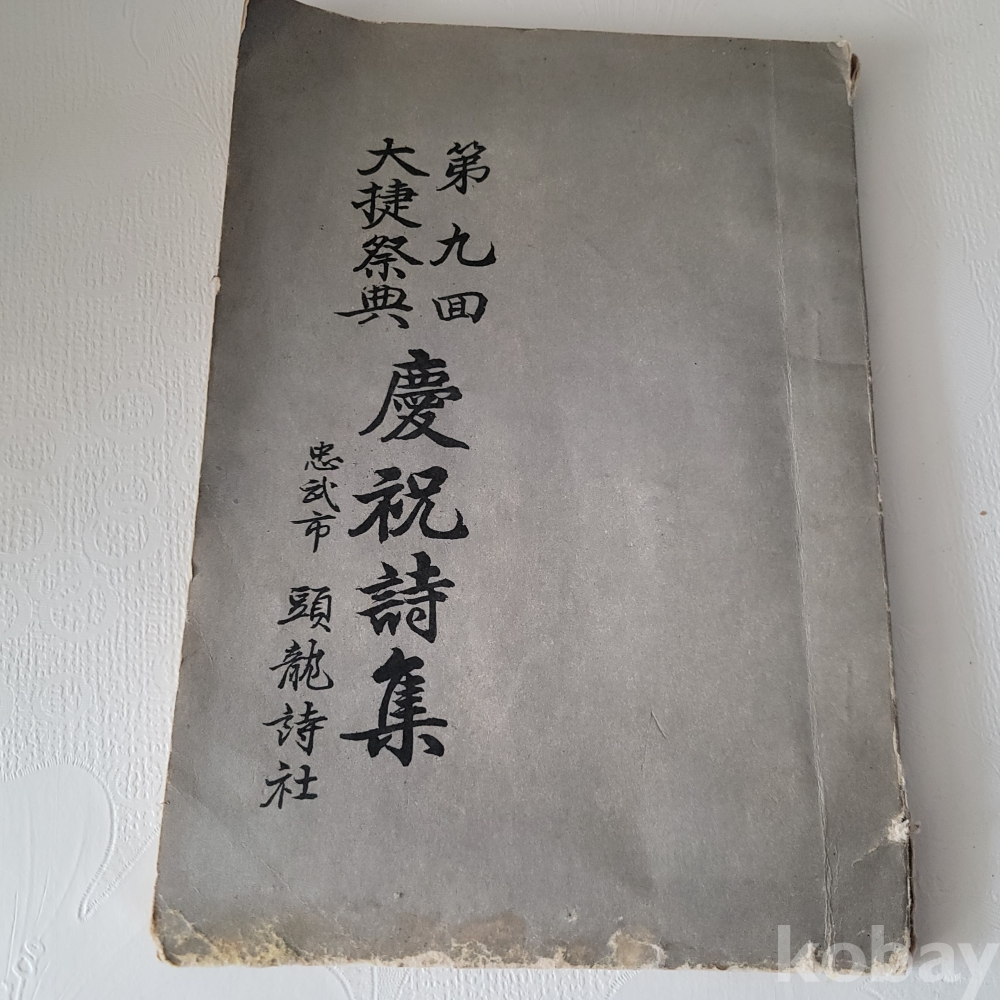 第九回
大捷祭典
慶祝詩集
忠武市 頭龍詩社
kobay